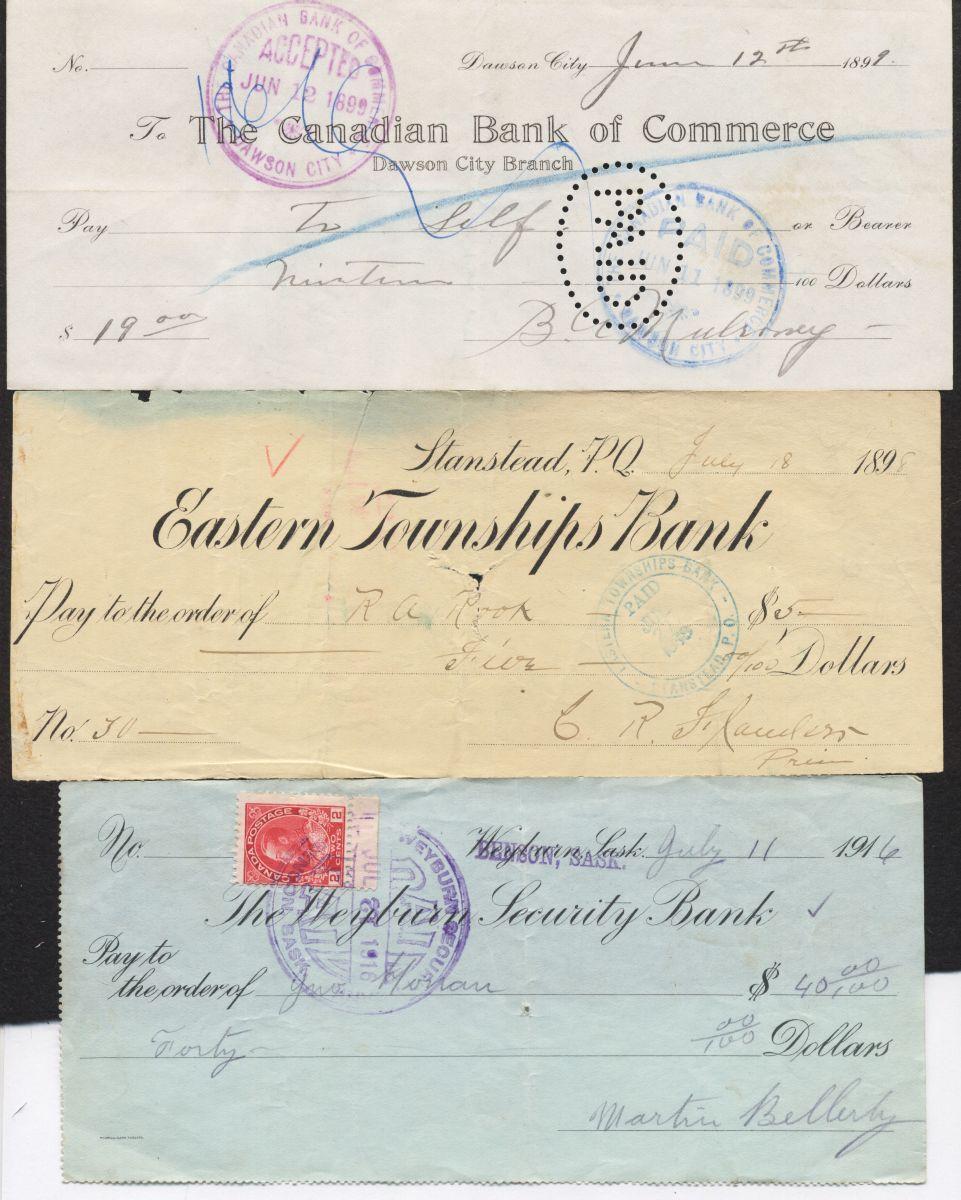 THE CANADIAN BANK OF COMMERCE
ACCEPTED
JUN 12 1899
DAWSON CITY
No.
Dawson City June 12th 1899.
To The Canadian Bank of Commerce
Dawson City Branch
Pay To Self or Bearer
Nineteen 100 Dollars
$ 19 00
CANADIAN BANK OF COMMERCE
PAID
JUN 11 1899
DAWSON CITY
B A Mulroney
Stanstead, P.Q. July 18 1898
Eastern Townships Bank
Pay to the order of R A Rook $5-
Five 00/100 Dollars
EASTERN TOWNSHIPS BANK
PAID
STANSTEAD P.Q.
No. 30
C. R. Flanders
Prin.
No. Weyburn, Sask. July 11 1916
BENSON, SASK.
CANADA POSTAGE
2 TWO CENTS 2
The Weyburn Security Bank
WEYBURN SECURITY
PAID
1916
SASK
Pay to
the order of Jno Horan $ 40 00/100
Forty 00/100 Dollars
Martin Bellerby